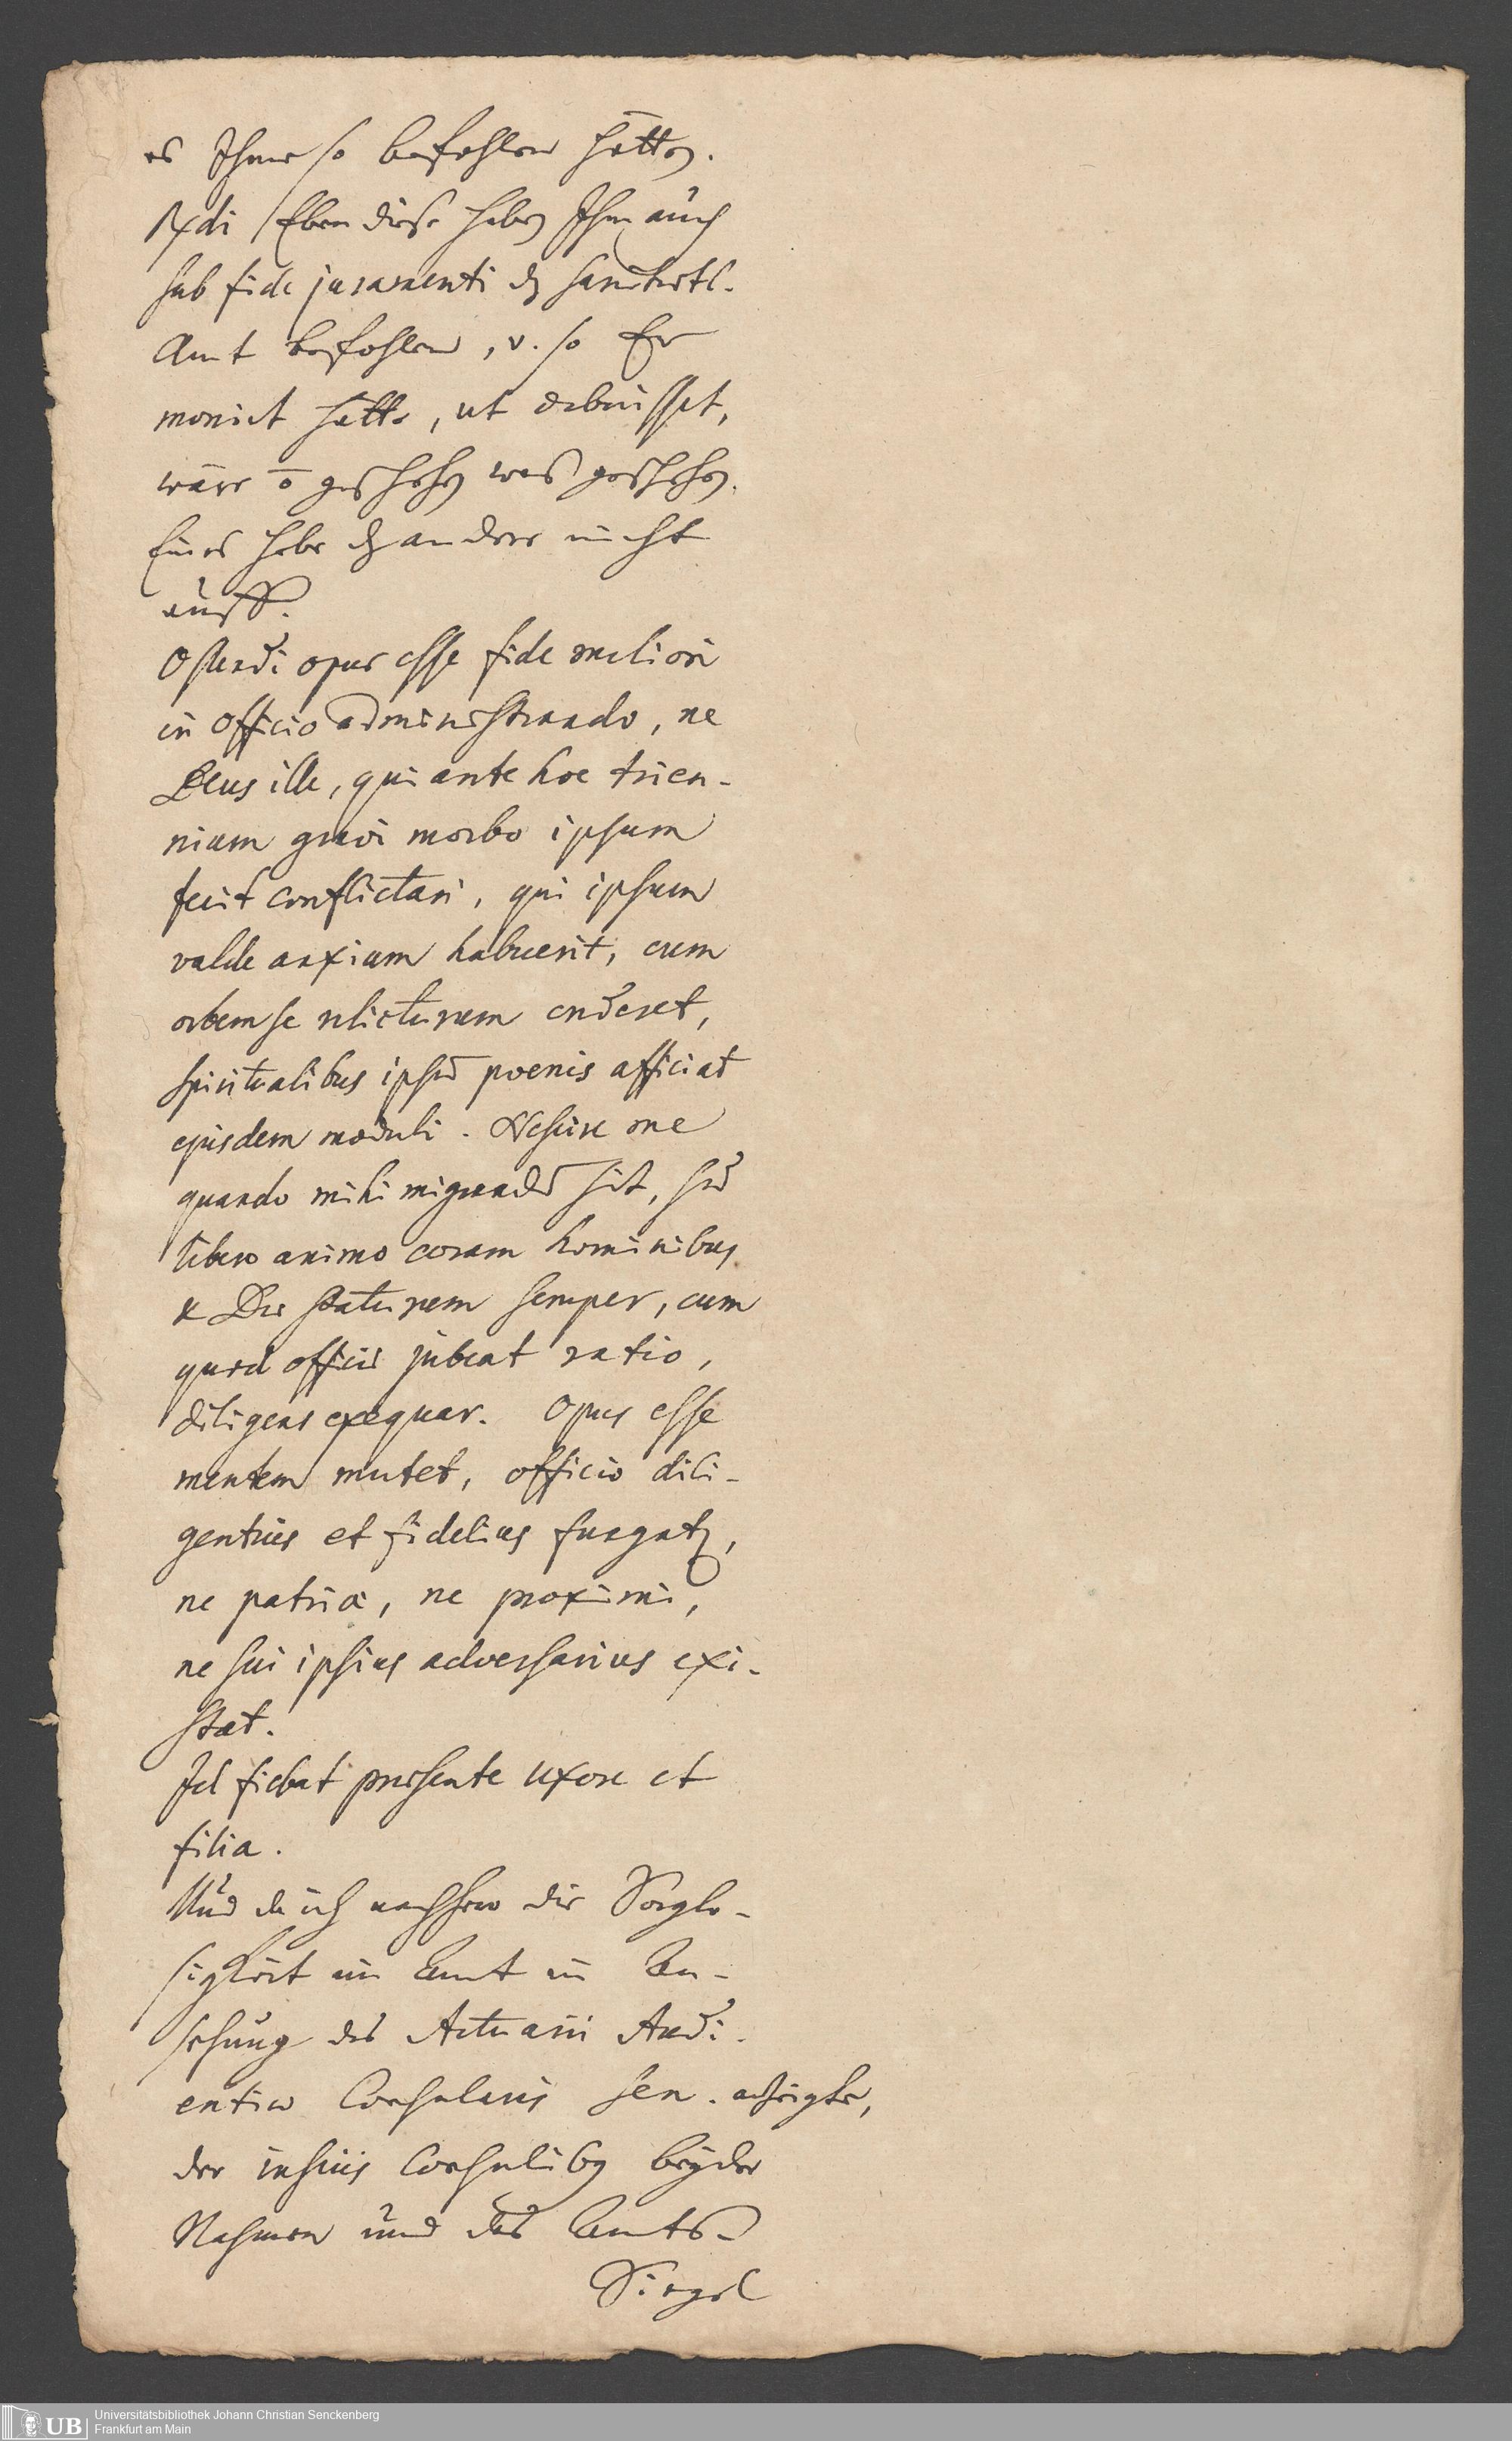 es Ihme so befohlen hätten.
Rxdi Eben diese haben Ihm auch
sub fide juramenti dz
Amt befohlen, v. so Er
monirt hätte, ut debuisset,
wäre õ geschehen was geschehen.
Eines habe dz andere nicht
auff.
Ostendi opus esse fide meliori
in officio administrando, ne
Deus ille, qui ante hoc trien-
nium gravi morbo ipsum
fecit conflictari, qui ipsum
valde anxium habuerit, cum
orbem se relicturum crederet,
spiritualibus ipsum poenis afficiat
ejusdem moduli. Nescire me
quando mihi migrandum sit, sed
libero animo coram hominibus
& Deo staturum semper, cum
quod officii jubeat ratio,
diligens exequar. Opus esse
mentem mutet, officio dili-
gentius et fidelius fungatur,
ne patriæ, ne proximi,
ne sui ipsius adversarius exi-
stat.
Id fiebat præsente uxore et
filia.
Und da ich nachhero die Sorglo-
sigkeit im Amt in An-
sehung des Actuarii Audi-
entiæ Consularis sen. anzeigte,
der insciis Consulibus beyder
Nahmen und das Amts-
Siegel
Universitätsbibliothek Johann Christian Senckenberg
Frankfurt am Main
UB